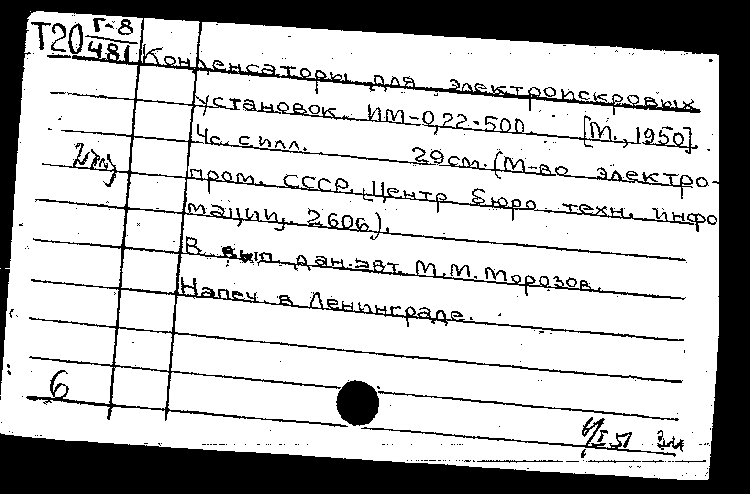 Т20 Г-8
481
Конденсаторы для электроискровых
установок ИМ-0,22-500. [М., 1950].
4с. с илл. 29см. (М-во электро-
пром. СССР. Центр бюро техн. инфо
мации, 2606).
В вып дан. авт. М.М. Морозов.
Напеч. в Ленинграде.
6
I 51